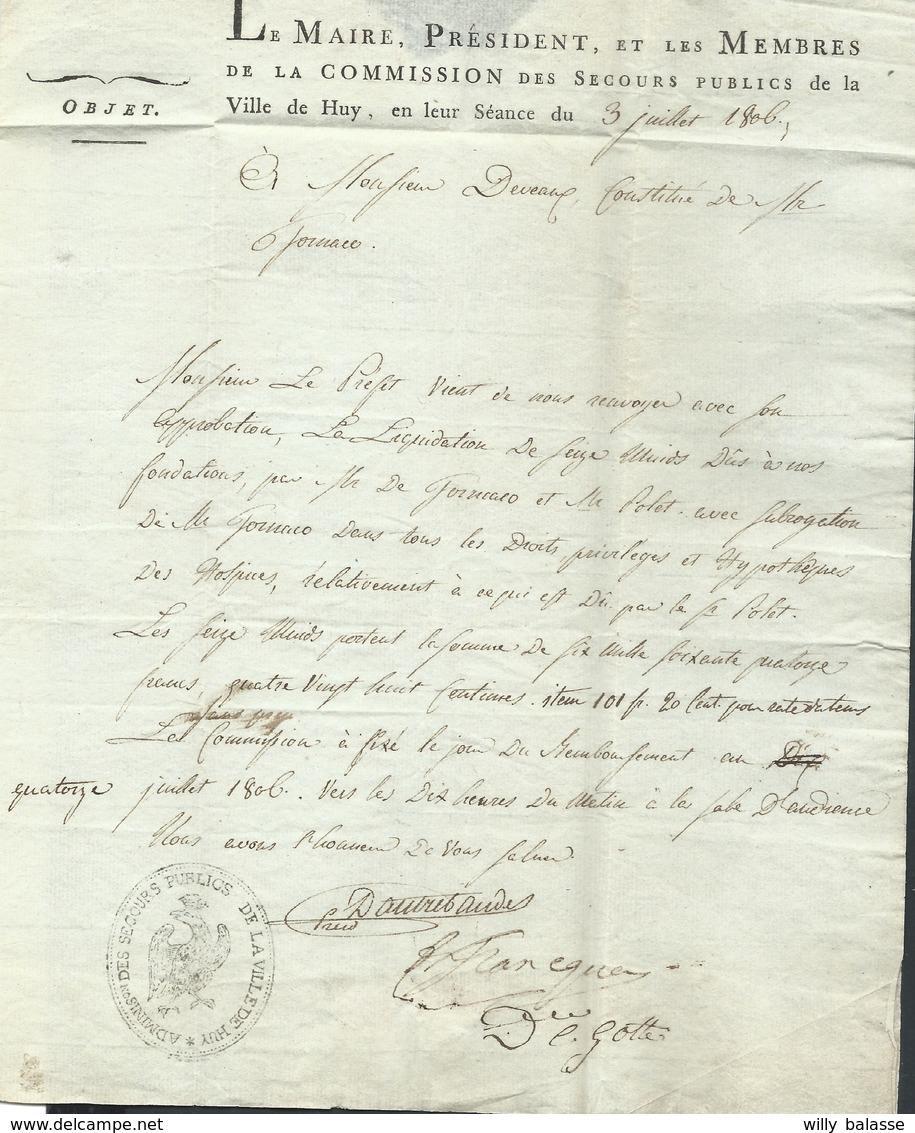 LE MAIRE, PRÉSIDENT, ET LES MEMBRES
DE LA COMMISSION DES SECOURS PUBLICS de la
Ville de Huy, en leur Séance du 3 juillet 1806.,
OBJET.
à Monsieur Deveaux, Constitué de Mr
Tornaco.
Monsieur Le Prefet vient de nous renvoyer avec son
approbation, La Liquidation De Seize Muids Dûs à nos
fondations, par Mr De Tornaco et Mr Polet. avec subrogation
De Mr Tornaco Dans tous les Droits, privilèges et Hypothèques
Des Hospices, rélativement à ce qui est Dû par le Sr Polet.
Les Seize Muids portent la somme De Six Mille Soixante quatorze
francs, quatre Vingt huit Centimes. item 101 fr. 20 Cent. pour rate de tems
La Commission à fixé le jour Du Remboursement au Dix
quatorze juillet 1806. Vers les Dix heures Du Matin à la Salle D'audience
Nous avons l'honneur De Vous Saluer
Dautrebande
Presid
ADMINIS.ON DES SECOURS PUBLICS DE LA VILLE DE HUY *
willy balasse